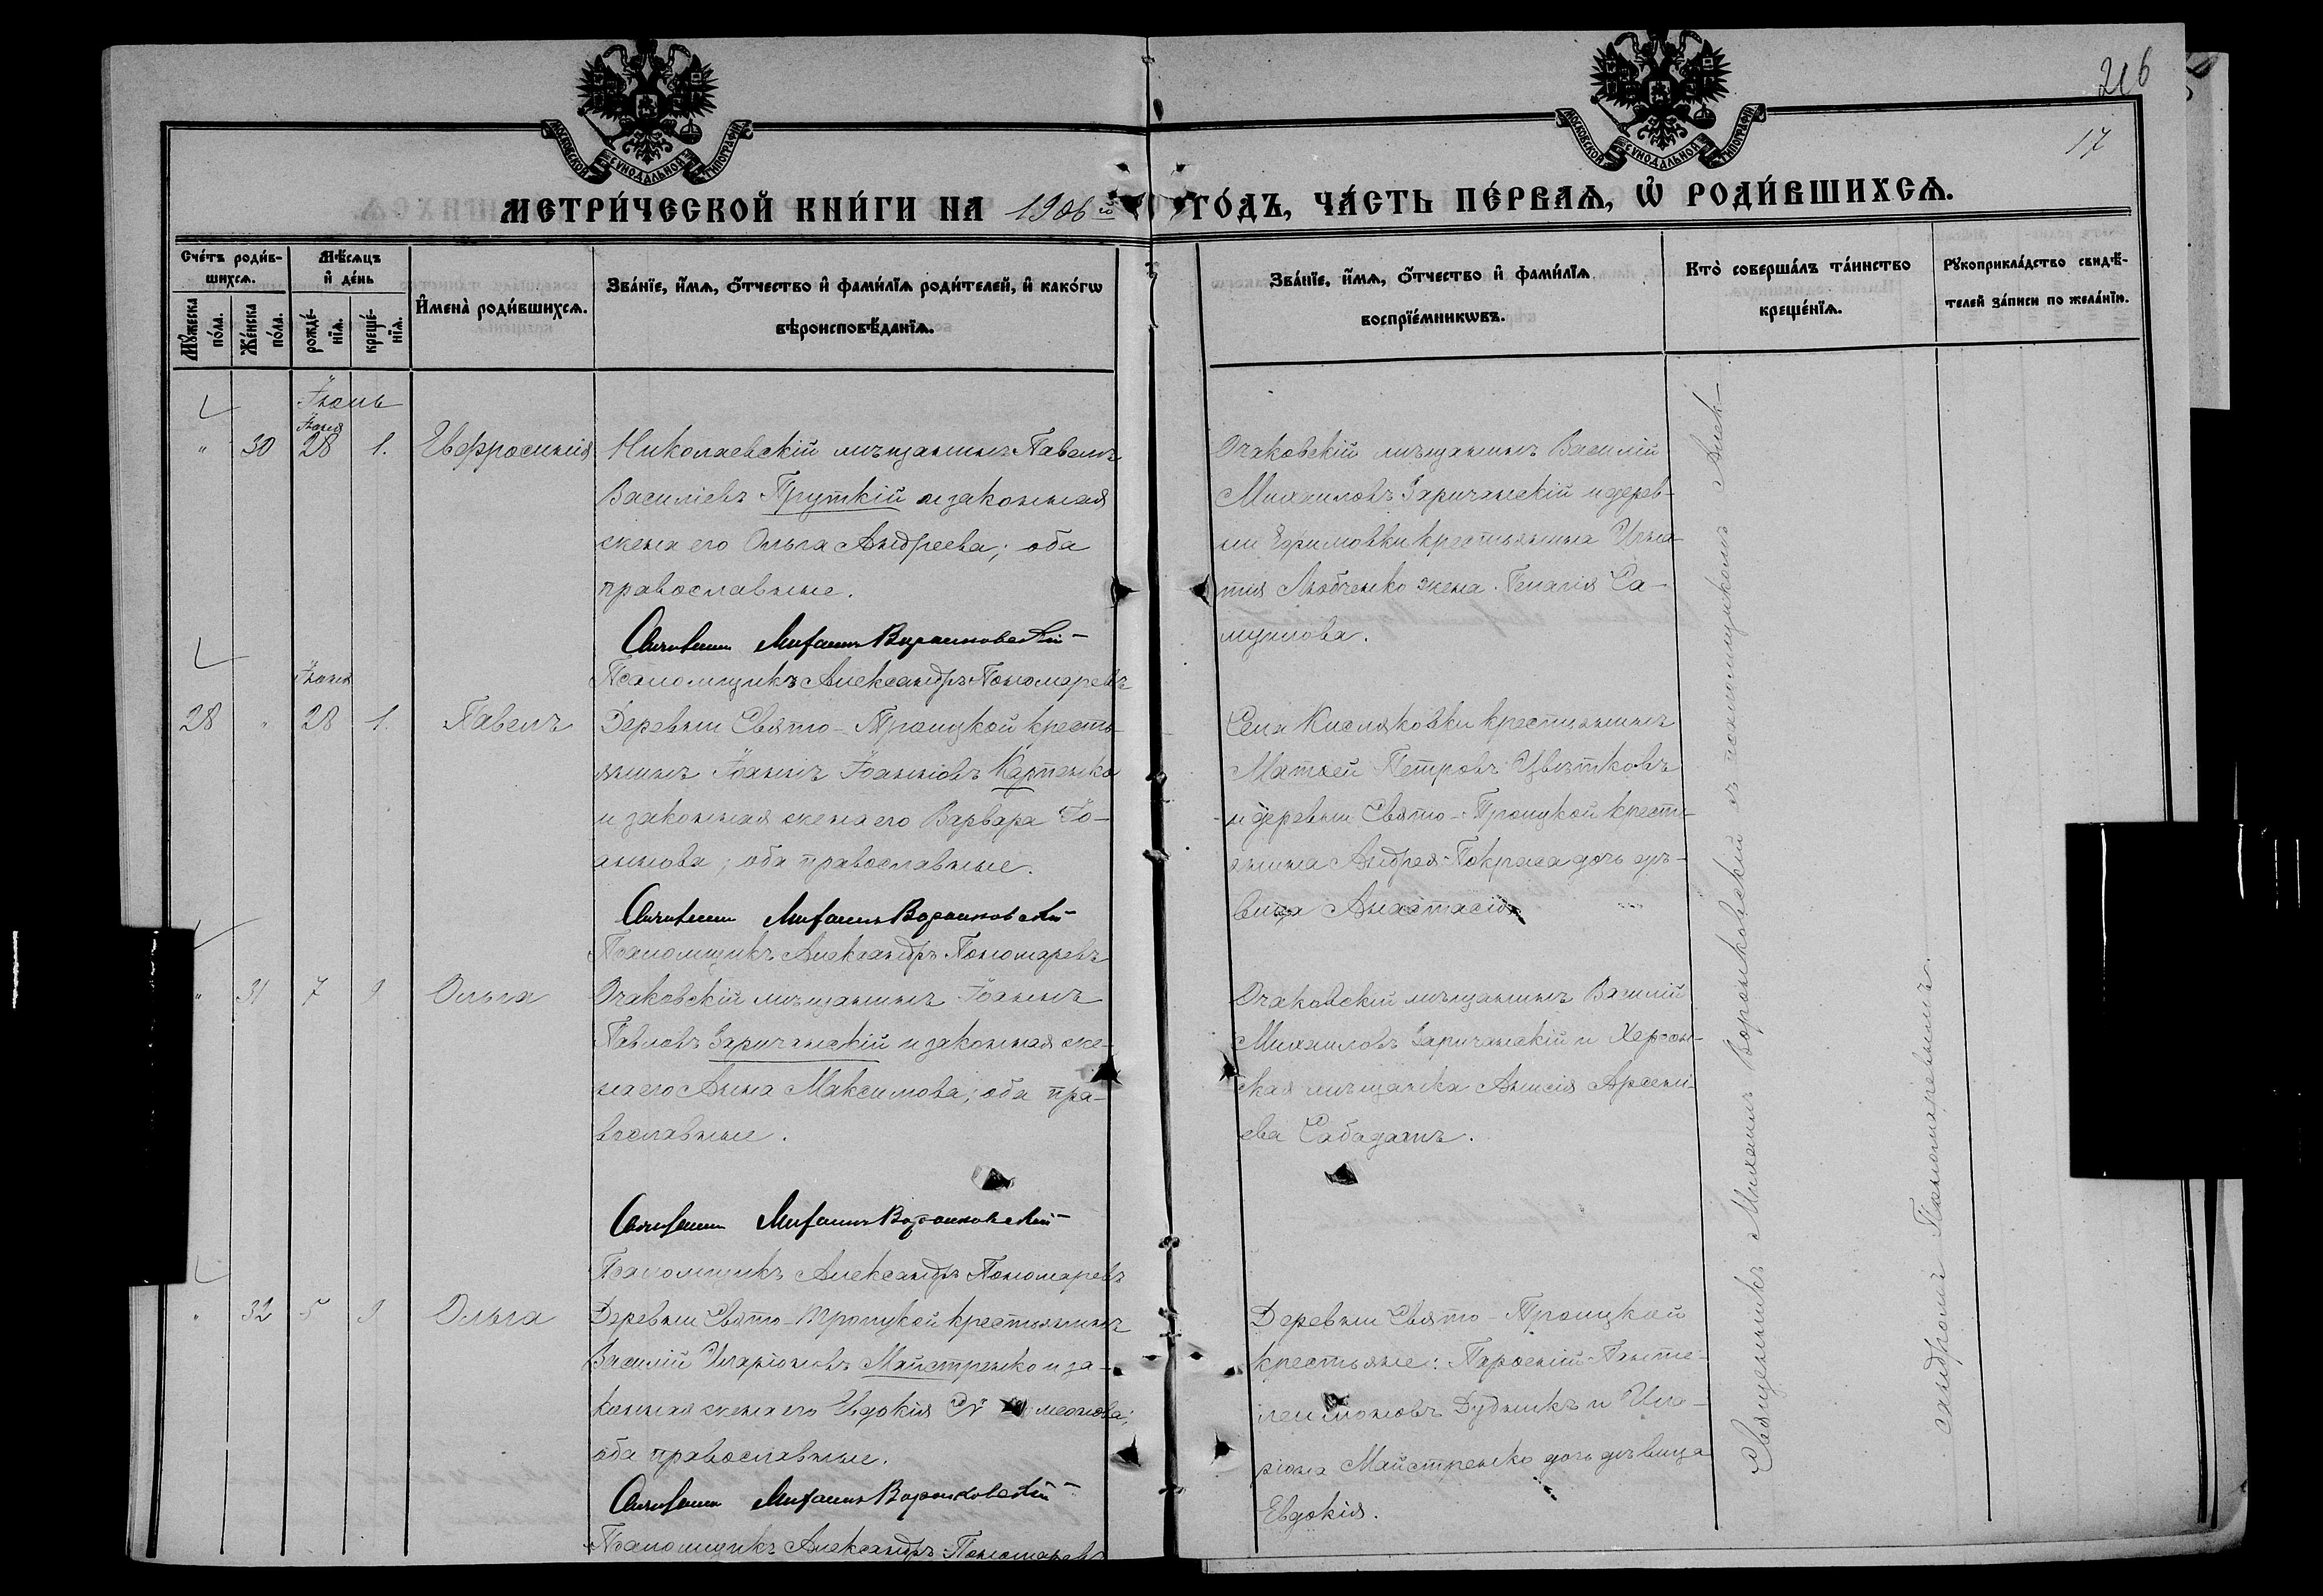 216
17
МОСКОВСКОЙ СѴНОДАЛЬНОЙ ТИПОГРАФІИ
МОСКОВСКОЙ СѴНОДАЛЬНОЙ ТИПОГРАФІИ
МЕТРИ́ЧЕСКОЙ КНИ́ГИ НА 1906 й ГО́ДЪ, ЧА́СТЬ ПЕ́РВАѦ, Ѡ҆ РОДИ́ВШИХСѦ.
Сче́тъ роди́в-
шихсѧ.
Мꙋ́жеска по́ла.
Же́нска по́ла.
Мѣ́сѧцъ
и҆ де́нь
рожде́-нїѧ.
креще́-нїѧ.
И҆мена̀ роди́вшихсѧ.
Зва́нїе, и҆́мѧ, ѻ҆́тчество и҆ фами́лїѧ роди́телей, и҆ како́гѡ
вѣроисповѣ́данїѧ.
Зва́нїе, и҆́мѧ, ѻ҆́тчество и҆ фами́лїѧ
воспрїе́мникѡвъ.
Кто̀ соверша́лъ та́инство
креще́нїѧ.
Рꙋкоприкла́дство свидѣ́-
телей за́писи по жела́нїю.
Іюль
Іюня
" 30 28 1. Евфросинія Николаевскій мѣщанинъ Павелъ
Василіевъ Пруткій и законная
жена его Ольга Андреева; оба
православные.
Священникъ Михаилъ Воронковскій
Псаломщикъ Александръ Пономаревъ
Очаковскій мѣщанинъ Василій
Михаиловъ Заричанскій и дерев-
ни Ефимовки крестьянина Игна-
тія Любченко жена Пелагія Са-
муилова.
Іюня
28 " 28 1. Павелъ Деревни Свято-Троицкой кресть-
янинъ Іоаннъ Іоанновъ Карпенко
и законная жена его Варвара Іо-
аннова; оба православные.
Священникъ Михаилъ Воронковскій
Псаломщикъ Александръ Пономаревъ
Села Кисляковки крестьянинъ
Матѳей Петровъ Цвѣтковъ
и деревни Свято-Троицкой кресть-
янина Андрея Покраса дочь дѣ-
вица Анастасія
" 31 7 9 Ольга Очаковскій мѣщанинъ Іоаннъ
Павловъ Заричанскій и законная же-
на его Анна Максимова; оба пра-
вославные.
Священникъ Михаилъ Воронковскій
Псаломщикъ Александръ Пономаревъ
Очаковскій мѣщанинъ Василій
Михаиловъ Заричанскій и Херсон-
ская мѣщанка Анисія Арсені-
ева Сабадашъ.
" 32 5 9 Ольга Деревни Свято-Троицкой крестьянинъ
Василій Иларіоновъ Майстренко и за-
конная жена его Евдокія меонова;
оба православные.
Священникъ Михаилъ Воронковскій
Псаломщикъ Александръ Пономаревъ
Деревни Свято-Троицкой
крестьяне: Пароеній Панте-
леимоновъ Дудникъ и Ила-
ріона Майстренко дочь дѣвица
Евдокія.
Священникъ Михаилъ Воронковскій съ псаломщикомъ Алек-
сандромъ Пономаревымъ.